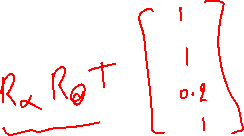 R∝ R⊙ T [ 1
1
0.2
1 ]